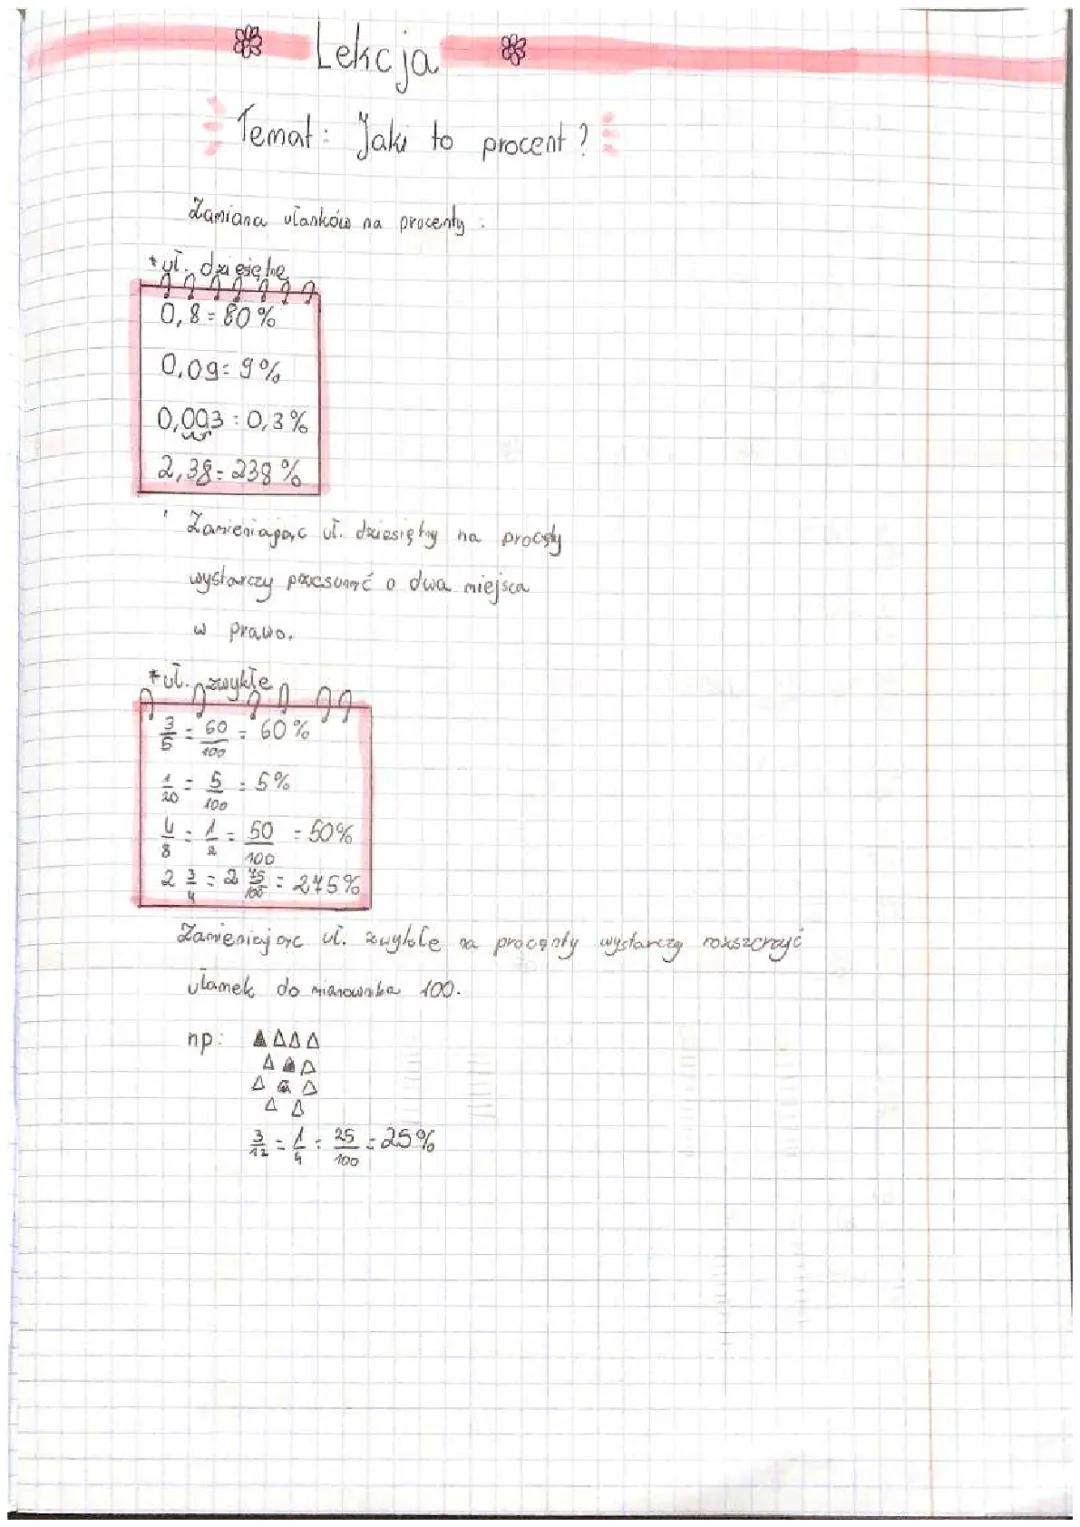 Lekcja
Temat: Jaki to procent?
Zamiana ułamków na procenty:
*uł. dziesiętne
0,8 = 80%
0,09 = 9%
0,003 = 0,3%
2,38 = 238%
Zamieniając uł. dziesiętny na procęty
wystarczy przesunąć o dwa miejsca
w prawo.
*uł. zwykłe
3/5 = 60/100 = 60%
1/20 = 5/100 = 5%
4/8 = 1/2 = 50/100 = 50%
2 3/4 = 2 75/100 = 275%
Zamieniając uł. zwykłe na procęnty wystarczy rozszerzyć
ułamek do mianownika 100.
np:
3/12 = 1/4 = 25/100 = 25%